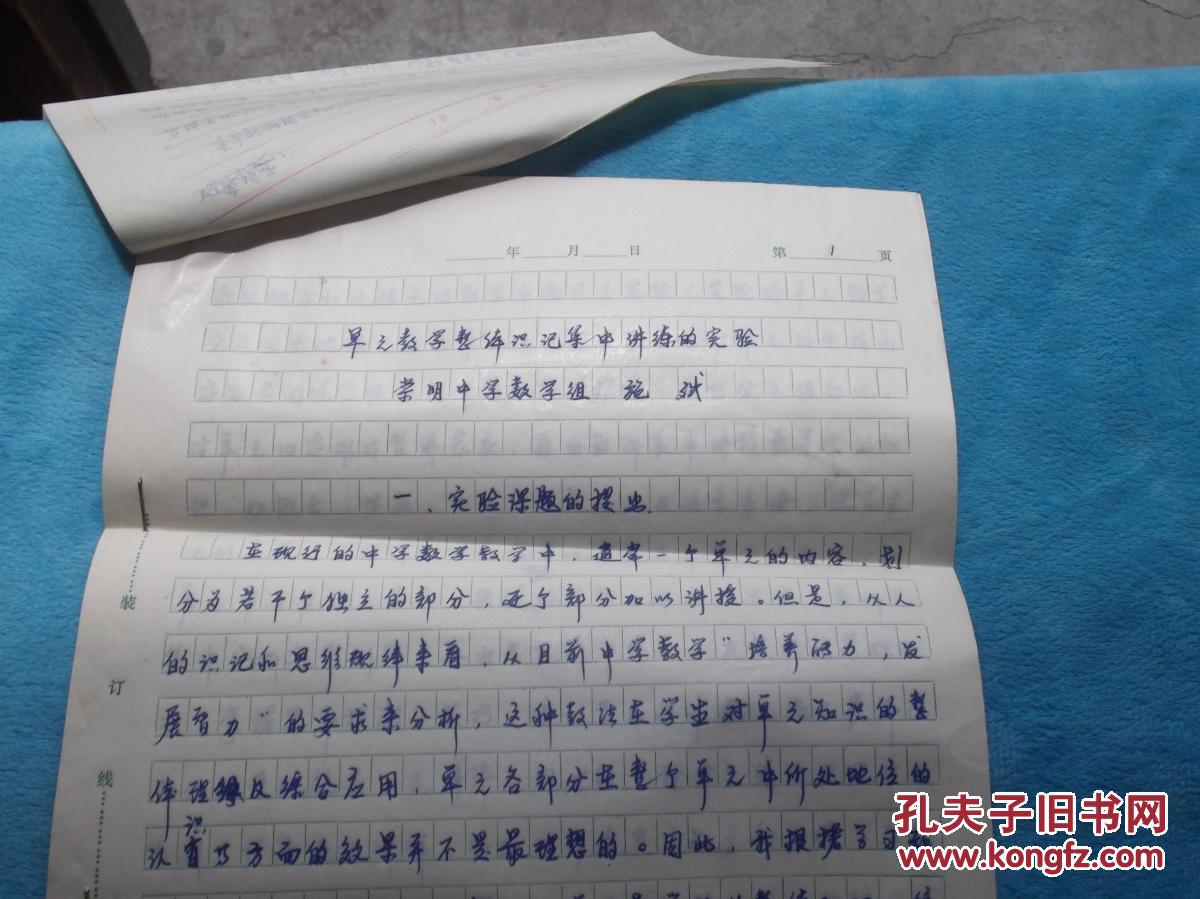 年 月 日 第 1 页
单元数学整体识记集中讲练的实验
崇明中学数学组 施 斌
一、实验课题的提出
在现行的中学数学教学中,通常一个单元的内容,划
分为若干个独立的部分,逐个部分加以讲授。但是,从人
的识记和思维规律来看,从目前中学数学"培养能力,发
展智力"的要求来分析,这种教法在学生对单元知识的整
体理解及综合应用,单元各部分在整个单元中所处地位的
认识等方面的效果并不是最理想的。因此,我根据
装
订
线
孔夫子旧书网
www.kongfz.com